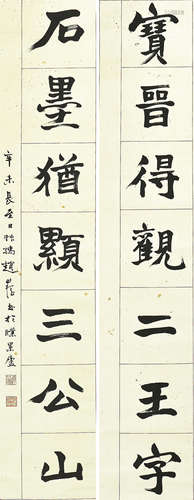 寶晉得觀二王字
石墨猶顯三公山
辛未長至日